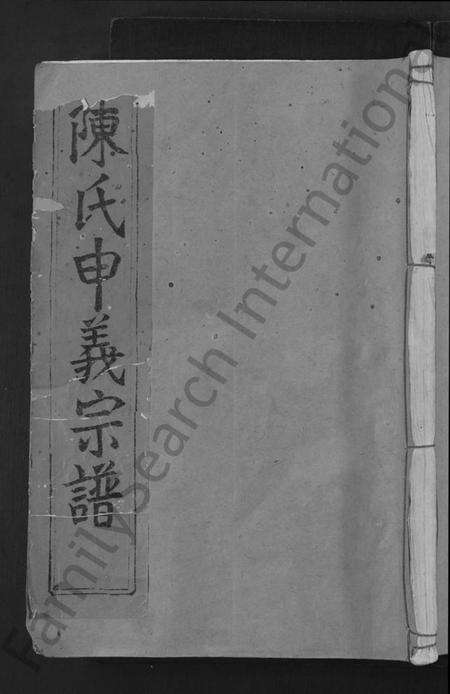 陳氏申義宗譜
FamilySearch International